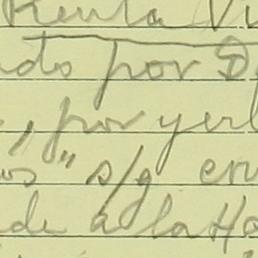 Renta Vi
ndo por D
, por yerb
os" s/g en
de a la Ho